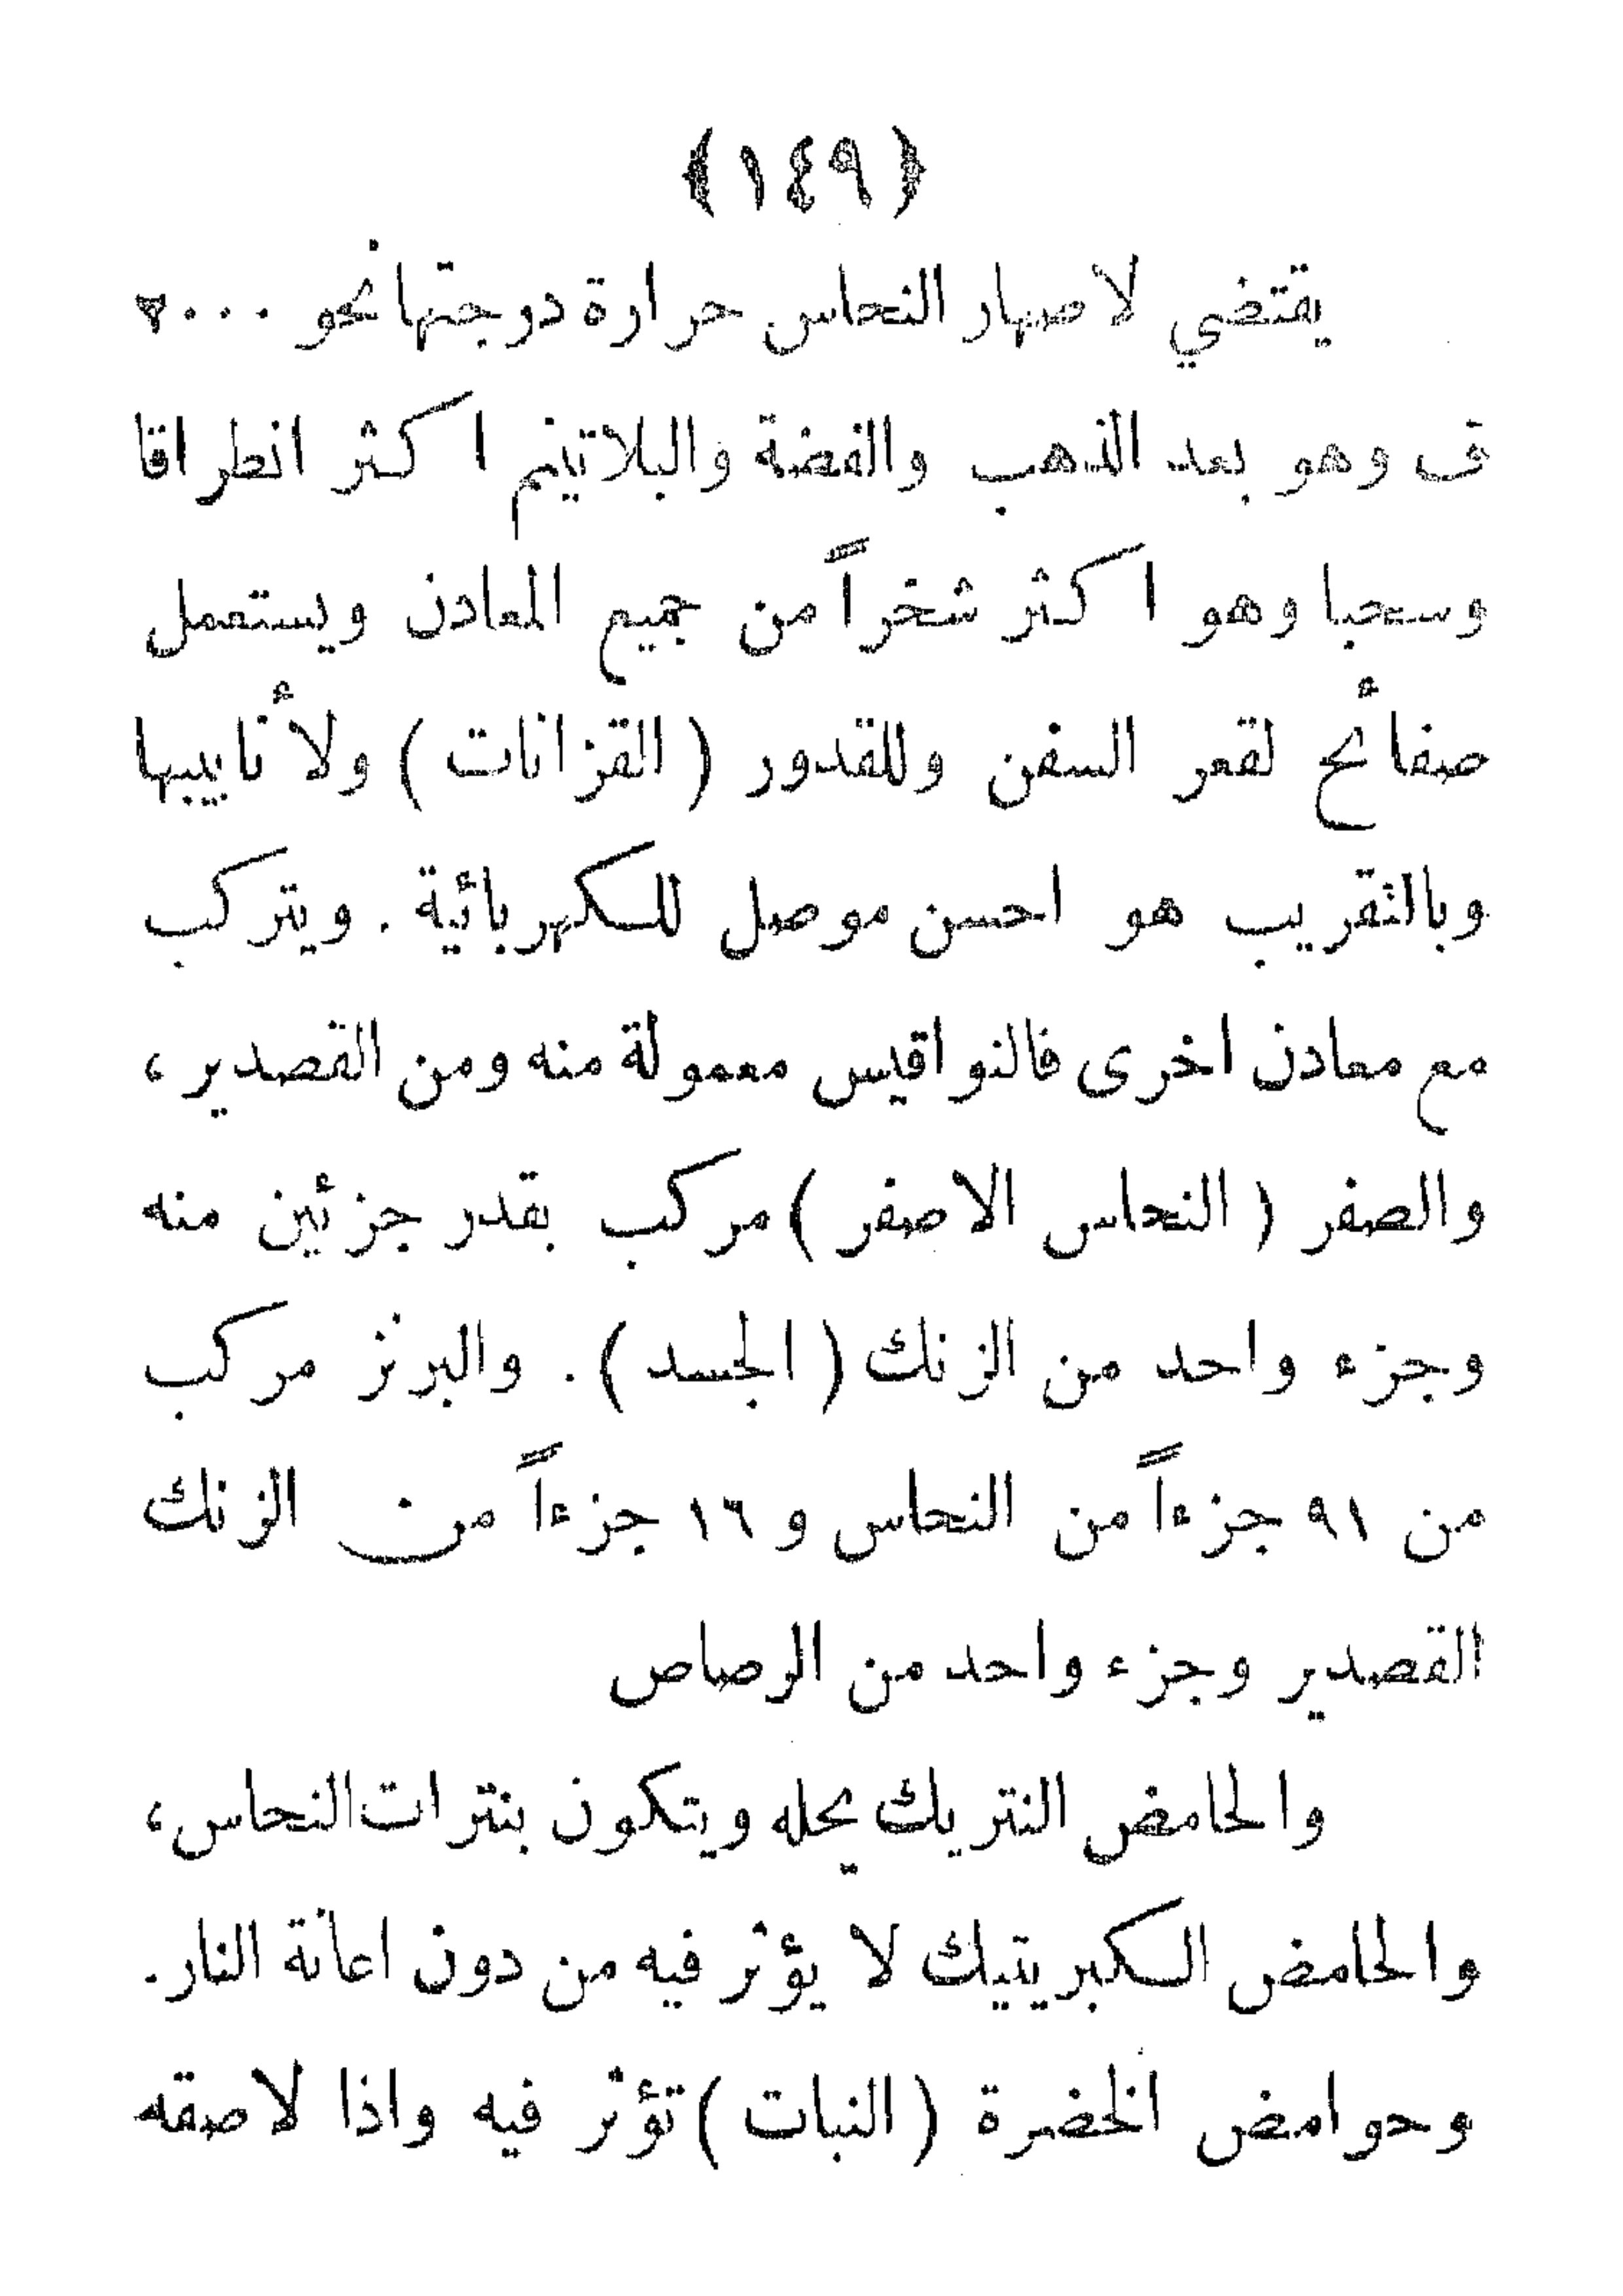 ﴿١٤٩﴾
يقتضي لاصهار النحاس حرارة دوجتها نحو ٢٠٠٠
ف وهو بعد الذهب والفضة والبلاتينم اكثر انطراقا
وسحبا وهو اكثر شخراً من جميع المعادن ويستعمل
صفائح لقعر السفن وللقدور (القزانات) ولأنابيبها
وبالتقريب هو احسن موصل للكهربائية. ويتركب
مع معادن اخرى فالنواقيس معمولة منه ومن القصدير،
والصفر (النحاس الاصفر) مركب بقدر جزئين منه
وجزء واحد من الزنك (الجسد). والبرنز مركب
من ٩١ جزءاً من النحاس و ١٦ جزءاً من الزنك
القصدير وجزء واحد من الرصاص
والحامض النتريك يحله ويتكون بنترات النحاس،
والحامض الكبريتيك لا يؤثر فيه من دون اعانة النار.
وحوامض الخضرة (النبات) تؤثر فيه واذا لاصقه